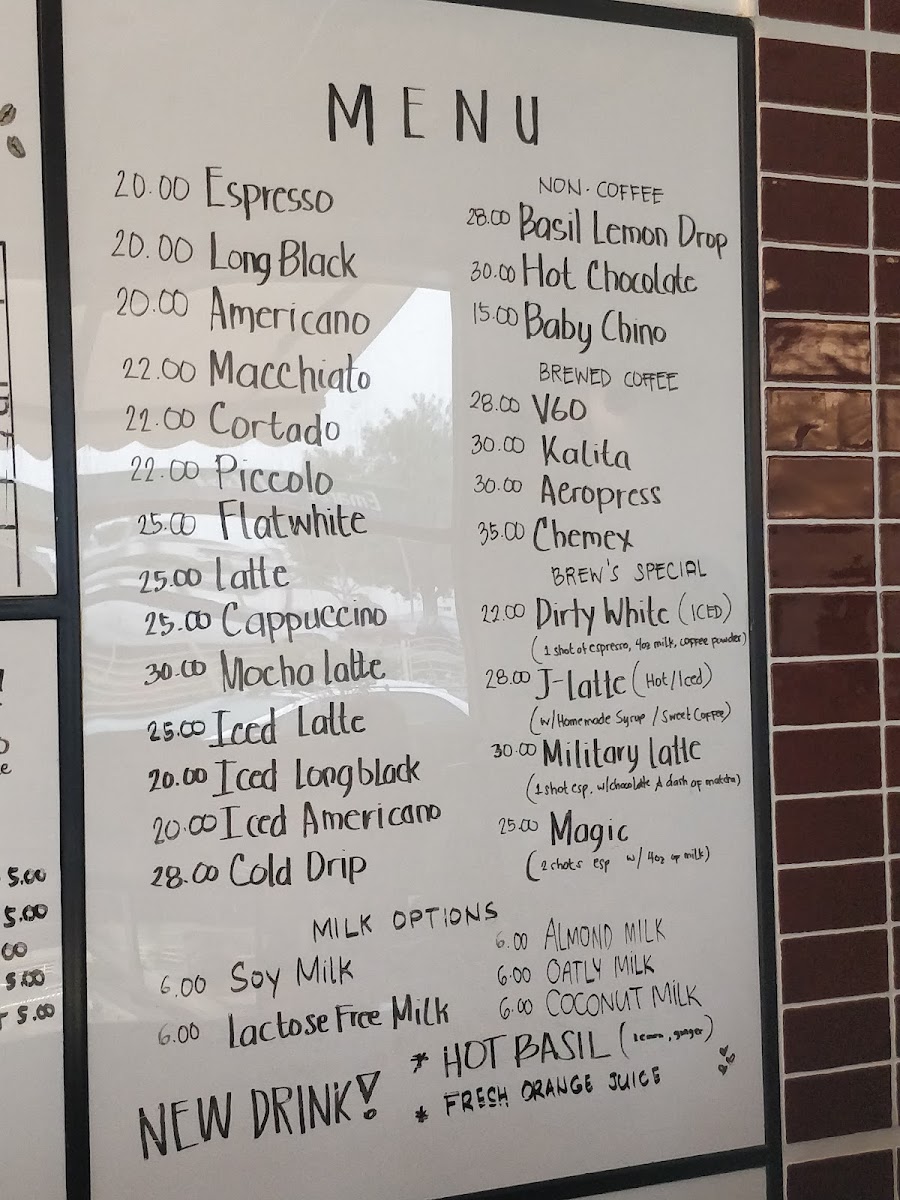 MENU
20.00 Espresso
20.00 Long Black
20.00 Americano
22.00 Macchiato
22.00 Cortado
22.00 Piccolo
25.00 Flatwhite
25.00 Latte
25.00 Cappuccino
30.00 Mocha latte
25.00 Iced Latte
20.00 Iced Longblack
20.00 Iced Americano
28.00 Cold Drip
NON-COFFEE
28.00 Basil Lemon Drop
30.00 Hot Chocolate
15.00 Baby Chino
BREWED COFFEE
28.00 V60
30.00 Kalita
30.00 Aeropress
35.00 Chemex
BREW'S SPECIAL
22.00 Dirty White (ICED)
(1 shot of espresso, 4oz milk, coffee powder)
28.00 J-latte (Hot/Iced)
(w/Homemade Syrup / Sweet Coffee)
30.00 Military latte
(1 shot esp. w/chocolate & dash of matcha)
25.00 Magic
(2 shots esp w/ 4oz of milk)
MILK OPTIONS
6.00 Soy Milk
6.00 Lactose Free Milk
6.00 ALMOND MILK
6.00 OATLY MILK
6.00 COCONUT MILK
NEW DRINK!
* HOT BASIL (lemon, ginger)
* FRESH ORANGE JUICE
5.00
5.00
00
5.00
5.00